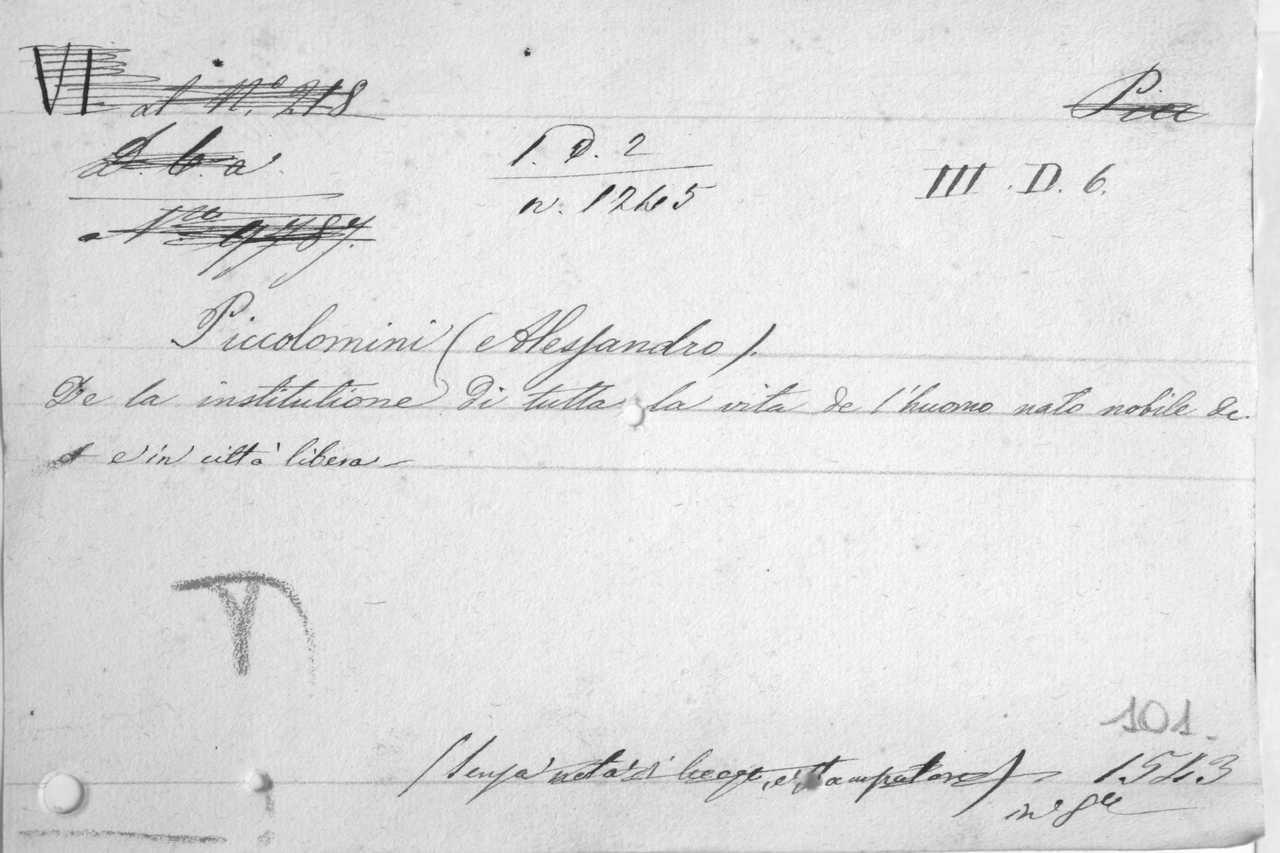 VI al N.º 218
Pia
D. b. a
I. D. 2
III. D. 6.
N.ro 9787.
n. 1265
Piccolomini (Alessandro).
De la institutione di tutta la vita de l'huomo nato nobile
e in città libera
101.
(Senza nota di luogo, e stampatore) 1543
in 8º